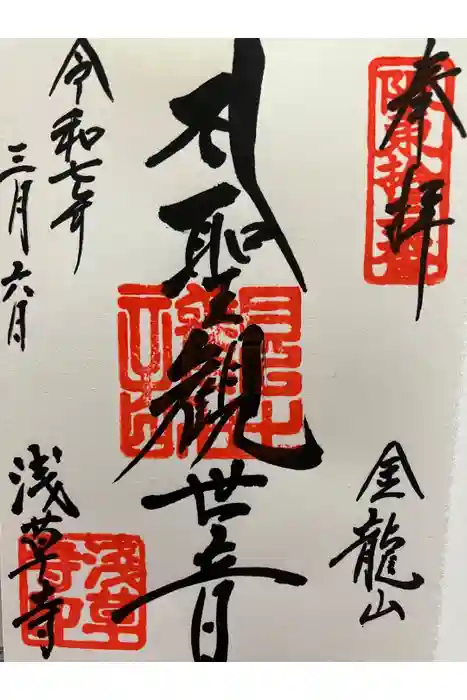 奉拝
金龍山
聖観世音
令和七年
三月六日
浅草寺
浅草寺印